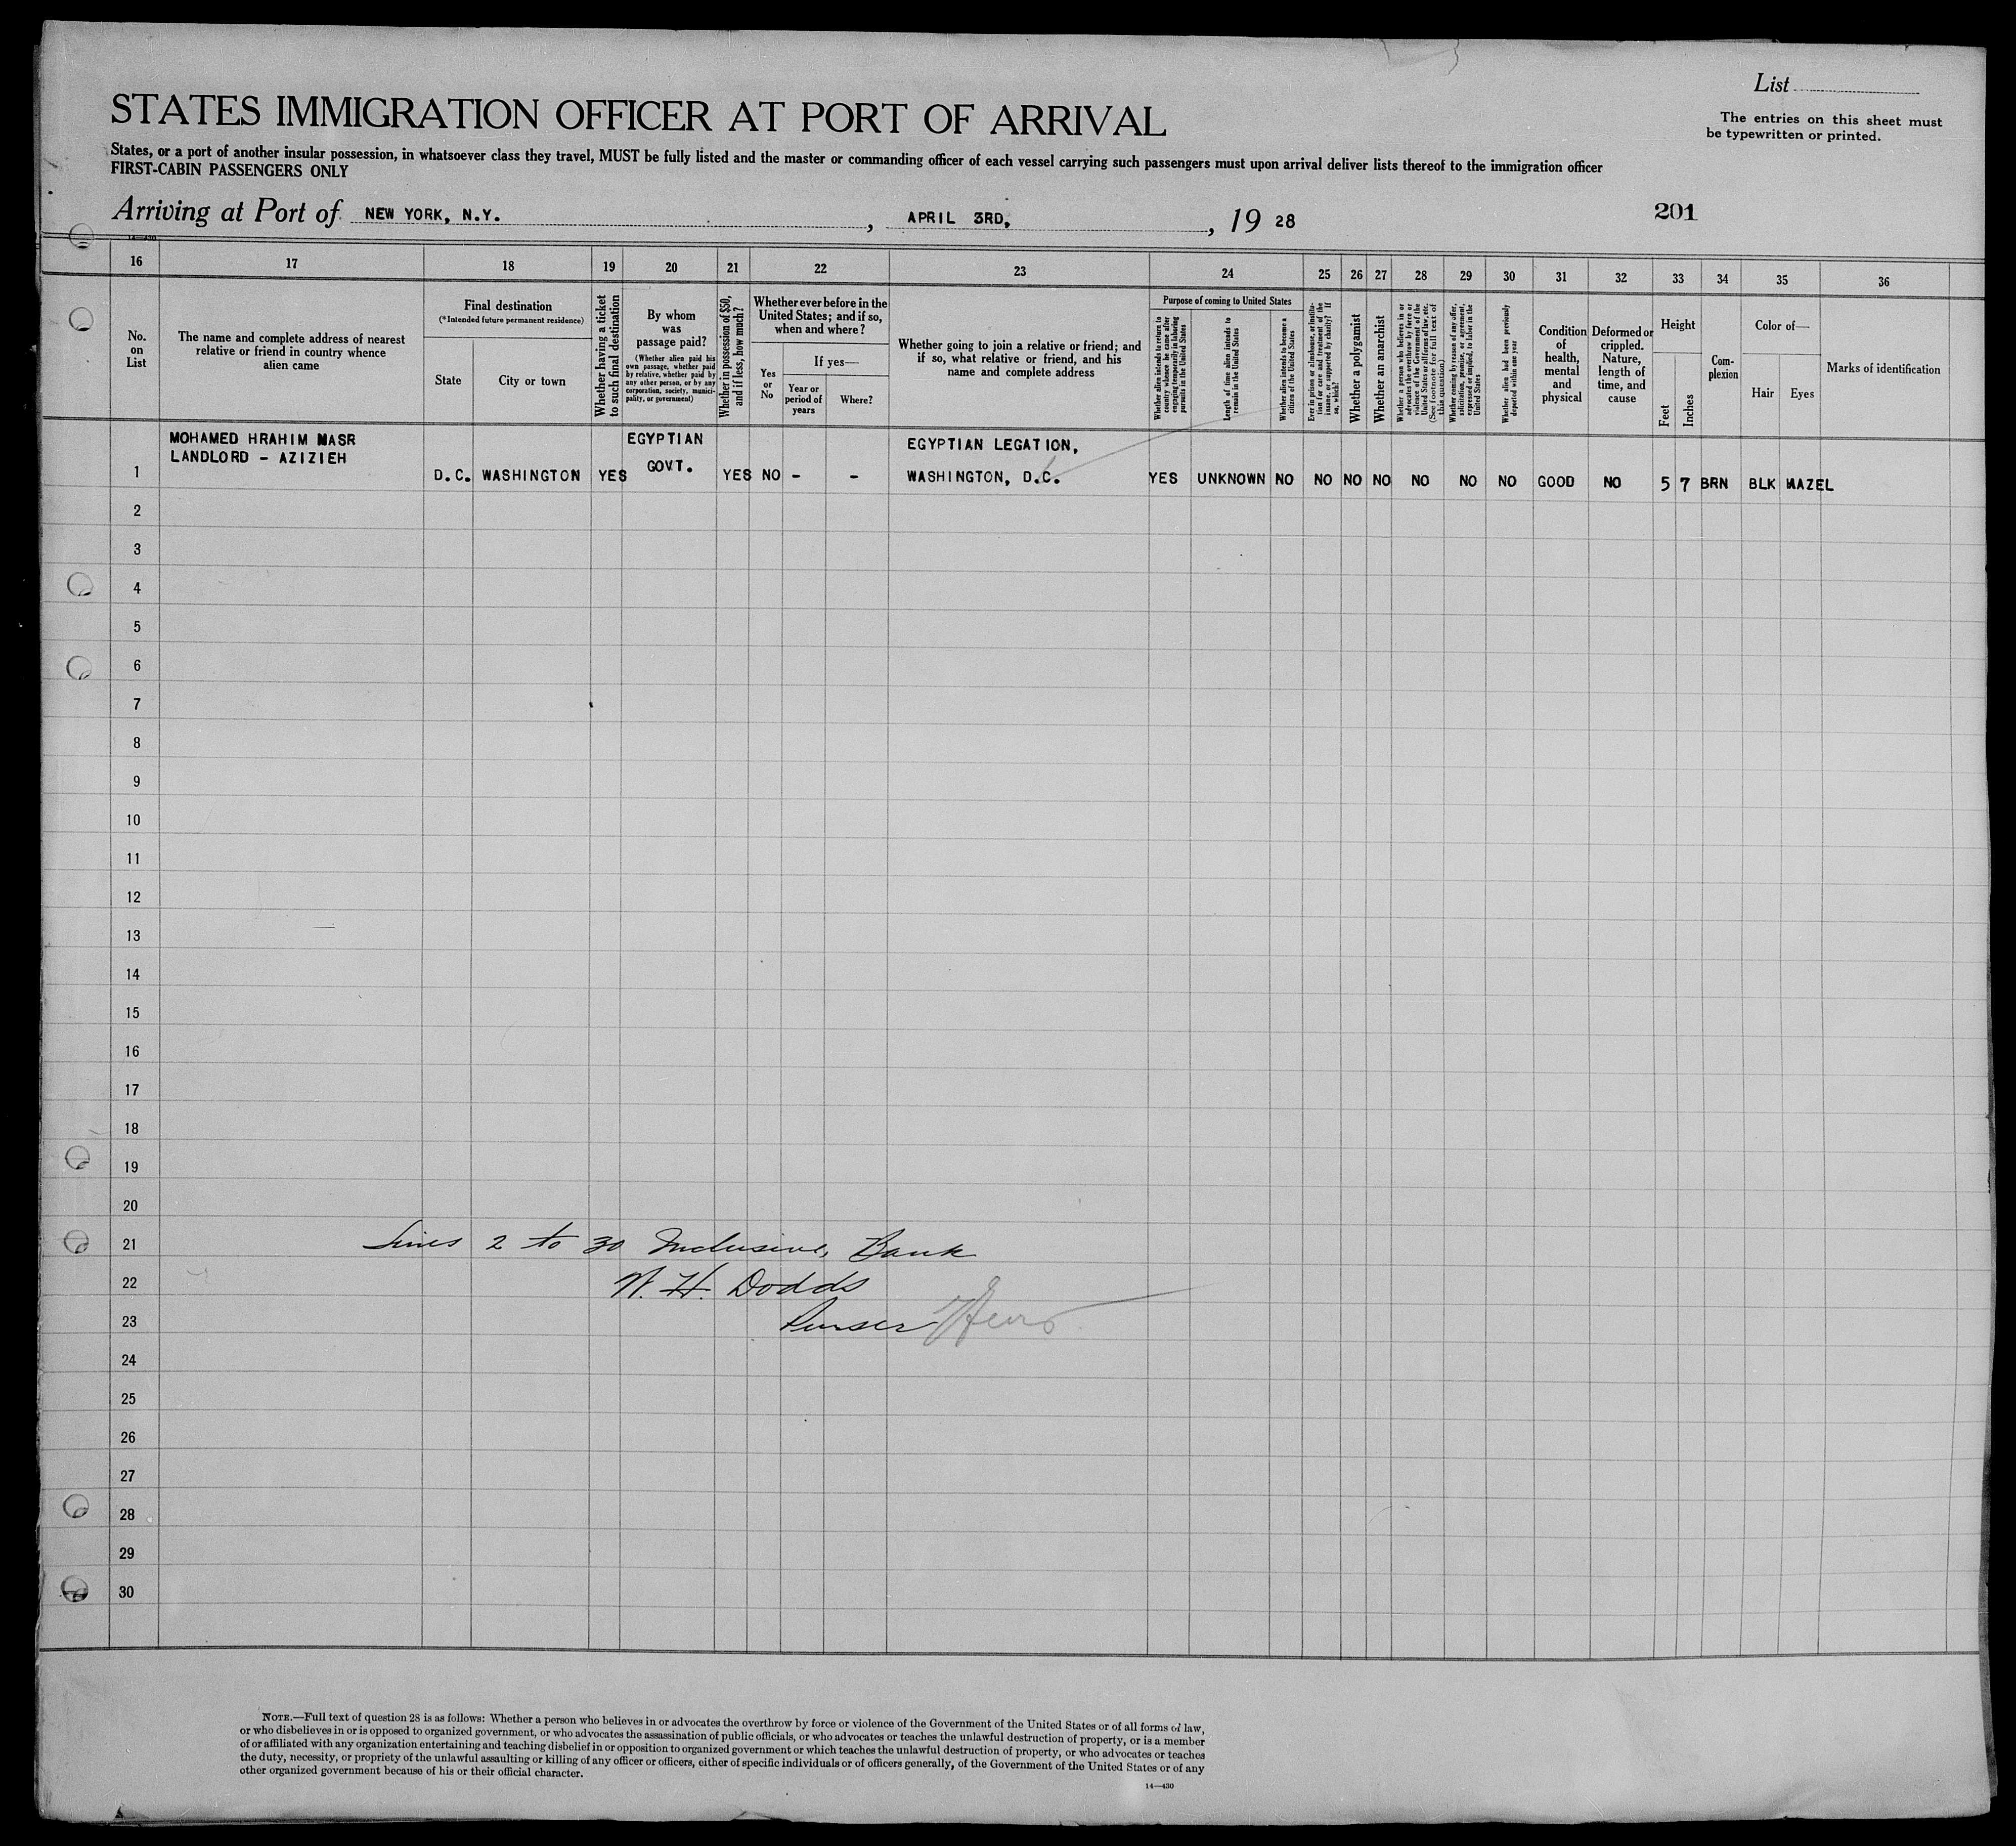 List
STATES IMMIGRATION OFFICER AT PORT OF ARRIVAL
The entries on this sheet must
be typewritten or printed.
States, or a port of another insular possession, in whatsoever class they travel, MUST be fully listed and the master or commanding officer of each vessel carrying such passengers must upon arrival deliver lists thereof to the immigration officer
FIRST-CABIN PASSENGERS ONLY
Arriving at Port of NEW YORK, N.Y. , APRIL 3RD, , 19 28
201
16 17 18 19 20 21 22 23 24 25 26 27 28 29 30 31 32 33 34 35 36
No.
on
List
The name and complete address of nearest
relative or friend in country whence
alien came
Final destination
(*Intended future permanent residence)
State
City or town
Whether having a ticket
to such final destination
By whom
was
passage paid?
(Whether alien paid his
own passage, whether paid
by relative, whether paid by
any other person, or by any
corporation, society, munici-
pality, or government)
Whether in possession of $50,
and if less, how much?
Whether ever before in the
United States; and if so,
when and where?
Yes
or
No
If yes—
Year or
period of
years
Where?
Whether going to join a relative or friend; and
if so, what relative or friend, and his
name and complete address
Purpose of coming to United States
Whether alien intends to return to
country whence he came after
engaging temporarily in laboring
pursuits in the United States
Length of time alien intends to
remain in the United States
Whether alien intends to become a
citizen of the United States
Ever in prison or almshouse, or institu-
tion for care and treatment of the
insane, or supported by charity? If
so, which?
Whether a polygamist
Whether an anarchist
Whether a person who believes in or
advocates the overthrow by force or
violence of the Government of the
United States or all forms of law, etc.
(See footnote for full text of
this question)
Whether coming by reason of any offer,
solicitation, promise, or agreement,
expressed or implied, to labor in the
United States
Whether alien had been previously
deported within one year
Condition
of
health,
mental
and
physical
Deformed or
crippled.
Nature,
length of
time, and
cause
Height
Feet
Inches
Com-
plexion
Color of—
Hair
Eyes
Marks of identification
MOHAMED HRAHIM NASR
LANDLORD - AZIZIEH
EGYPTIAN
GOVT.
EGYPTIAN LEGATION,
1 D.C. WASHINGTON YES YES NO - - WASHINGTON, D.C. YES UNKNOWN NO NO NO NO NO NO NO GOOD NO 5 7 BRN BLK HAZEL
2
3
4
5
6
7
8
9
10
11
12
13
14
15
16
17
18
19
20
21 Lines 2 to 30 Inclusive, Bank
22 W. H. Dodds
23 Purser
24
25
26
27
28
29
30
NOTE.—Full text of question 28 is as follows: Whether a person who believes in or advocates the overthrow by force or violence of the Government of the United States or of all forms of law,
or who disbelieves in or is opposed to organized government, or who advocates the assassination of public officials, or who advocates or teaches the unlawful destruction of property, or is a member
of or affiliated with any organization entertaining and teaching disbelief in or opposition to organized government or which teaches the unlawful destruction of property, or who advocates or teaches
the duty, necessity, or propriety of the unlawful assaulting or killing of any officer or officers, either of specific individuals or of officers generally, of the Government of the United States or of any
other organized government because of his or their official character.
14—430